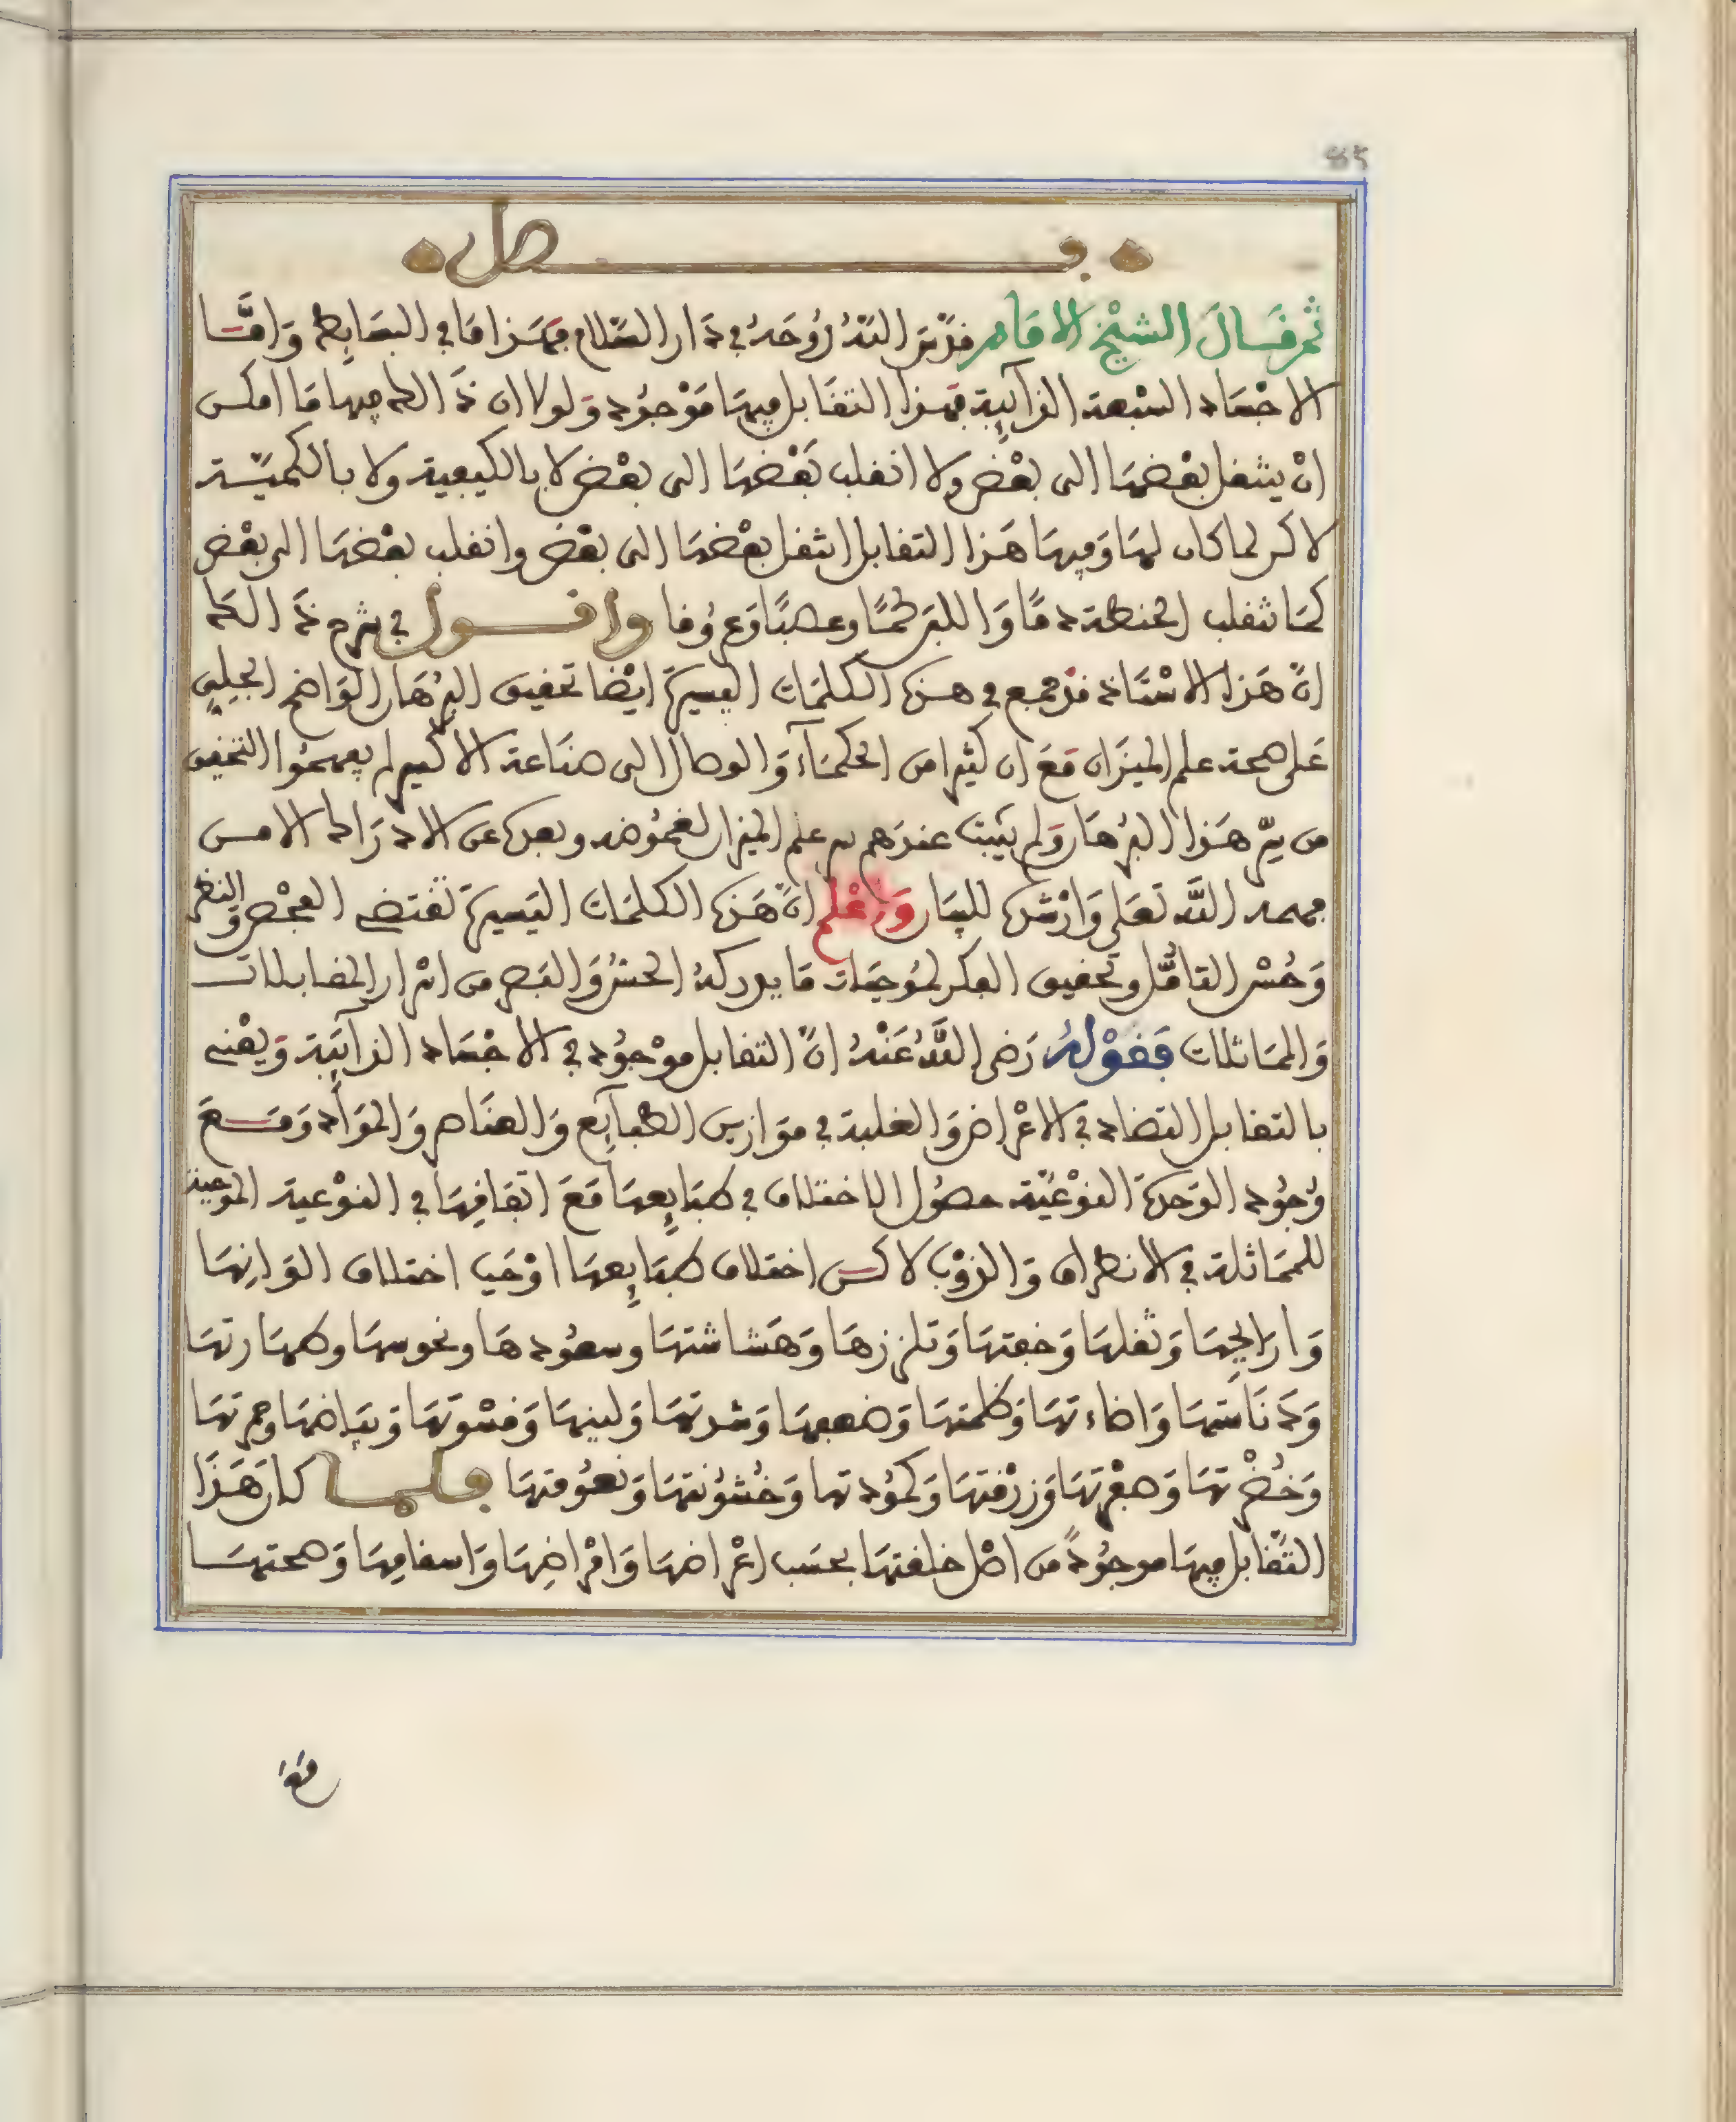 85
فصل
ثم قال الشيخ الامام قدّس الله رُوحَهُ في دَار السّلام فهَذا مَا في البسَايِط وَامَّا
الاجْسَاد السّبْعة الذآيِبة فهذا التقَابل فيهَا مَوْجُود وَلولا ان ذَالك فيها مَا امكن
انْ ينتقل بعْضهَا الى بعْض ولا انقلب بَعْضهَا الى بعْض لا بالكيفية ولا بالكميّة
لاكن لما كان لهَا وَفيهَا هَذا التقابل انتقل بعْضهَا الى بعْض وانقلب بعْضهَا الى بعْض
كمَا تنقلب الحنطة دمًا وَاللبن لحمًا وعصبًا وَعروُقا واقول في شرح ذَالك
انّ هَذا الاسْتَاذ قدْ جمع في هذه الكلمَات اليسيرة ايْضا تحقيق البرْهَان الوَاضح الجليّ
عَلى صحة علم الميزَان مَعَ ان كثيرا من الحكمَآء وَالوصال الى صنَاعة الاكسير لم يفهمُوا التحقيق
من سِرّ هَذا البرْهَان وَلم يثبت عندَهم سر علم الميزان لغمُوضه وبعده عن الادرَاك الا من
فهمه اللَّه تعَلى وَارْشده للبيَان وَاعْلم انّ هَذه الكلمَات اليَسيرة تقتضي الفحْص وَالنظر
وَحُسْن التامُّل وتحقيق الفكر لمُوجبَات مَا يدركهُ الحسُّ وَالبَصر من اسْرار المقابلات
وَالممَاثلات فقَوْلهُ رَضى اللَّهُ عَنْهُ انّ التقابل موْجُود في الاجْسَاد الذآيبَة وَيعْني
بالتقابل التضاد في الاعْراض وَالغلبة في موَازين الطبآيَع وَالعنَاصر وَالموَآد وَمَعَ
وُجُود الوَحدة النوْعيّة حصُول الاختلاف في طبَايِعهَا مَعَ اتفَاقِهَا في النوْعية الموجبة
للممَاثلة في الانطراق وَالذوْب لاكن اختلاف طبَايِعهَا اوْجَب اختلاف القوَانِهَا
وَارَايِحِهَا وَثقلهَا وَخفتهَا وَتلززهَا وَهَشاشتهَا وسعُودهَا ونحوسهَا وطهَارتهَا
وَدنَاستهَا وَاضاءتهَا وَظلمتهَا وَضعفهَا وَشدتهَا وَلينهَا وَقسْوتهَا وَبيَاضهَا وحمرتهَا
وَخُضْرتهَا وَصفْرتهَا وَزرْقتهَا وَكمُودتها وَخُشوُنتهَا وَنعُومتهَا فلما كان هَذَا
التقَابل فيهَا موجوُدً من اصْل خلقتهَا بحسَب اعْراضهَا وَامْراضِهَا وَاسقامِهَا وَصحتهَا